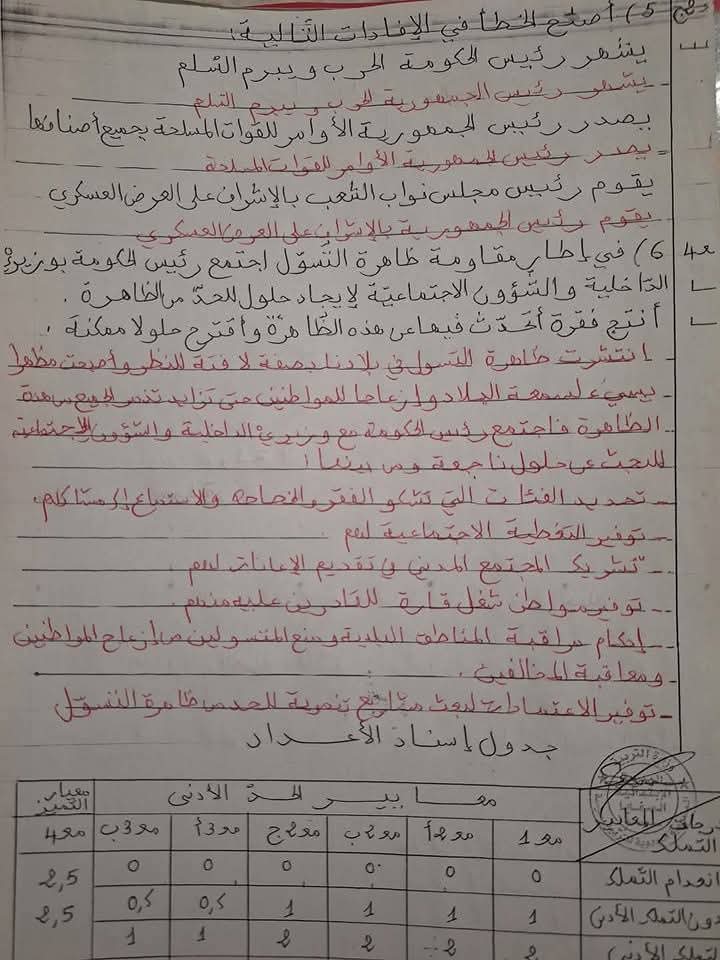 مع2ج 5) أصلح الخطأ في الإفادات التالية:
يشهر رئيس الحكومة الحرب ويبرم السلم
يشهر رئيس الجمهورية الحرب ويبرم السلم
يصدر رئيس الجمهورية الأوامر للقوات المسلحة بجميع أصنافها
يصدر رئيس الجمهورية الأوامر للقوات المسلحة
يقوم رئيس مجلس نواب الشعب بالإشراف على العرض العسكري
يقوم رئيس الجمهورية بالإشراف على العرض العسكري
مع4 6) في إطار مقاومة ظاهرة التسوّل اجتمع رئيس الحكومة بوزيريْ
الداخلية والشؤون الاجتماعيّة لإيجاد حلول للحدّ من الظاهرة.
أنتج فقرة أتحدّث فيها عن هذه الظّاهرة وأقترح حلولا ممكنة.
انتشرت ظاهرة التسول في بلادنا بصفة لافتة للنظر وأصبحت مظهرا
يسيء لسمعة البلاد وإزعاجا للمواطنين حتى تزايد تذمر الجميع من هذه
الظاهرة فاجتمع رئيس الحكومة مع وزيريْ الداخلية والشؤون الاجتماعية
للبحث عن حلول ناجعة ومن بينها:
- تحديد الفئات التي تشكو الفقر والخصاصة والاستماع إلى مشاكلهم.
- توفير التغطية الاجتماعية لهم.
- تشريك المجتمع المدني في تقديم الإعانات لهم.
- توفير مواطن شغل قارة للقادرين عليه منهم.
- إحكام مراقبة المناطق البلدية ومنع المتسولين من إزعاج المواطنين
ومعاقبة المخالفين.
- توفير الاعتمادات لبعث مشاريع تنموية للحد من ظاهرة التسوّل
جدول إسناد الأعداد
معايير الحدّ الأدنى معيار التميز
المعايير درجات التملك مع1 مع2أ مع2ب مع2ج مع3أ مع3ب مع4
انعدام التملك 0 0 0 0 0 0 2,5
دون التملك الأدنى 1 1 1 1 0,5 0,5 2,5
التملك الأدنى 2 2 2 2 1 1